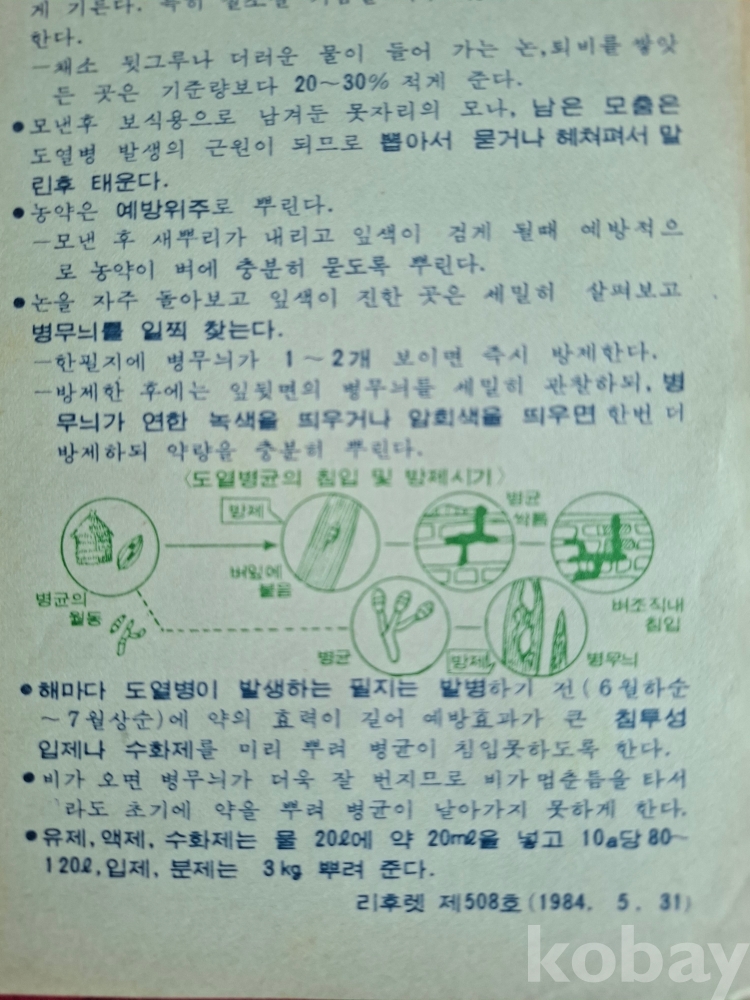 게 기른다. 특히
한다.
—채소 뒷그루나 더러운 물이 들어 가는 논, 퇴비를 쌓앗
든 곳은 기준량보다 20~30% 적게 준다.
● 모낸후 보식용으로 남겨둔 못자리의 모나, 남은 모춤은
도열병 발생의 근원이 되므로 뽑아서 묻거나 헤쳐펴서 말
린후 태운다.
● 농약은 예방위주로 뿌린다.
—모낸 후 새뿌리가 내리고 잎색이 검게 될때 예방적으
로 농약이 벼에 충분히 묻도록 뿌린다.
● 논을 자주 돌아보고 잎색이 진한 곳은 세밀히 살펴보고
병무늬를 일찍 찾는다.
—한필지에 병무늬가 1~2개 보이면 즉시 방제한다.
—방제한 후에는 잎뒷면의 병무늬를 세밀히 관찰하되, 병
무늬가 연한 녹색을 띄우거나 암회색을 띄우면 한번 더
방제하되 약량을 충분히 뿌린다.
〈도열병균의 침입 및 방제시기〉
방제
병균
싹틈
벼잎에
붙음
병균의
월동
벼조직내
침입
병균
방제
병무늬
● 해마다 도열병이 발생하는 필지는 발병하기 전(6월하순
~7월상순)에 약의 효력이 길어 예방효과가 큰 침투성
입제나 수화제를 미리 뿌려 병균이 침입못하도록 한다.
● 비가 오면 병무늬가 더욱 잘 번지므로 비가멈춘틈을 타서
라도 초기에 약을 뿌려 병균이 날아가지 못하게 한다.
● 유제, 액제, 수화제는 물 20ℓ에 약 20mℓ을 넣고 10a당 80~
120ℓ, 입제, 분제는 3kg 뿌려 준다.
리후렛 제508호 (1984. 5. 31)
kobay